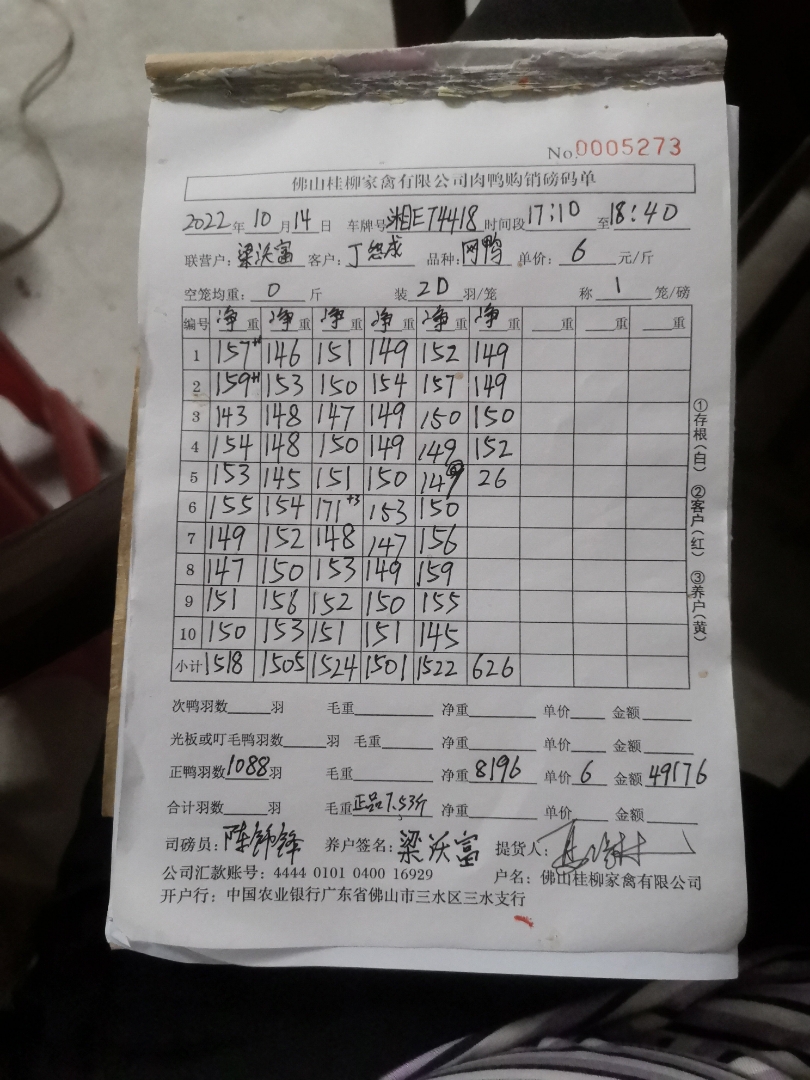 No.0005273
佛山桂柳家禽有限公司肉鸭购销磅码单
2022年10月14日 车牌号湘E74418时间段17:10至18:40
联营户:梁沃富 客户:丁 成 品种:网鸭 单价:6元/斤
空笼均重:0斤 装20羽/笼 称1笼/磅
编号 净重 净重 净重 净重 净重 净重 重 重 重
1 157+1 146 151 149 152 149
2 159+1 153 150 154 157 149
3 143 148 147 149 150 150
4 154 148 150 149 149 152
5 153 145 151 150 149 26
6 155 154 171+3 153 150
7 149 152 148 147 156
8 147 150 153 149 159
9 151 156 152 150 155
10 150 153 151 151 145
小计 1518 1505 1524 1501 1522 626
①存根(白) ②客户(红) ③养户(黄)
次鸭羽数 羽 毛重 净重 单价 金额
光板或叮毛鸭羽数 羽 毛重 净重 单价 金额
正鸭羽数1088羽 毛重 净重8196 单价6 金额49176
合计羽数 羽 毛重正品7.53斤 净重 单价 金额
司磅员:陈 锋 养户签名:梁沃富 提货人:
公司汇款账号:4444 0101 0400 16929 户名:佛山桂柳家禽有限公司
开户行:中国农业银行广东省佛山市三水区三水支行